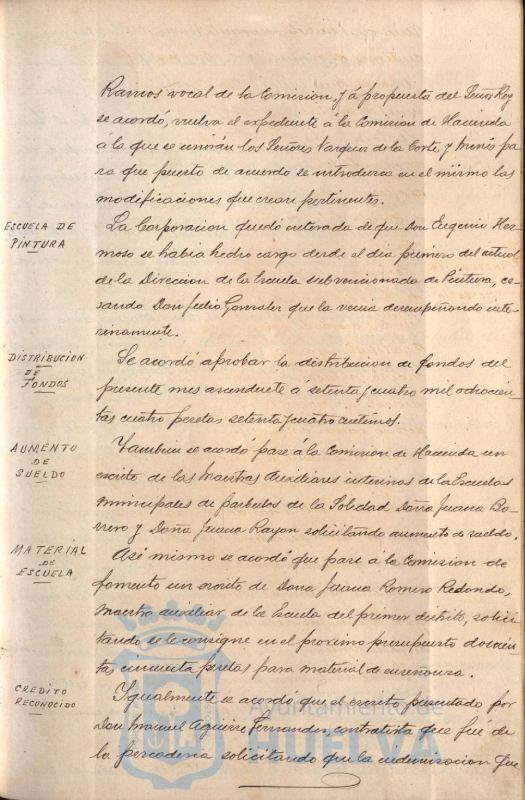 Ramos vocal de la Comision, y á propuesta del Señor Rey
se acordó, vuelva el expediente á la Comision de Hacienda
á la que se unirán los Señores Vazquez de la Corte, y Monís pa
ra que puesto de acuerdo se introduzca en el mismo las
modificaciones que crean pertinentes.
ESCUELA DE
PINTURA
La Corporacion quedó enterada de que Don Eugenio Her-
moso se habia hecho cargo desde el dia primero del actual
de la Direccion de la Escuela subvencionada de Pintura, ce-
sando Don Julio Gonzalez que la venia desempeñando inte-
rinamente.
DISTRIBUCION
DE
FONDOS
Se acordó aprobar la distribucion de fondos del
presente mes ascendente á setenta y cuatro mil ochocien
tas cuatro pesetas setenta y cuatro centimos.
AUMENTO
DE
SUELDO
Tambien se acordó pase á la Comision de Hacienda un
escrito de las Maestras Auxiliares interinas de la Escuelas
municipales de parbulos de la Soledad Doña Juana Bo-
rrero y Doña Juana Rayon solicitando aumento de sueldo.
MATERIAL
DE
ESCUELA
Asi mismo se acordó que pase á la Comision de
fomento un escrito de Doña Juana Romero Redondo,
Maestra auxiliar de la Escuela del primer distrito, solici
tando se le consigne en el proximo presupuesto doscien
tas cincuenta pesetas para material de enseñanza.
CREDITO
RECONOCIDO
Igualmente se acordó que el escrito presentado por
Don Manuel Aguirre Fernandez, contratista que fué de
la pescaderia solicitando que la indemnizacion que
Ayuntamiento de
HUELVA